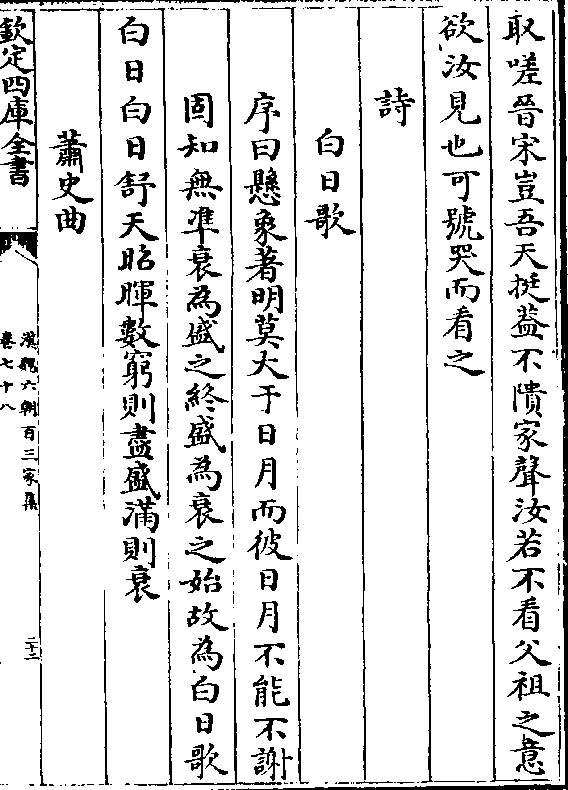 取嗟晉宋豈吾天挺葢不隤家聲汝若不看父祖之意
欲汝見也可號哭而看之
詩
白日歌
序曰懸象著明莫大于日月而彼日月不能不謝
固知無凖衰為盛之終盛為衰之始故為白日歌
白日白日舒天昭暉數窮則盡盛滿則衰
蕭史曲
欽定四庫全書
漢魏六朝百三家集
卷七十八
二十二